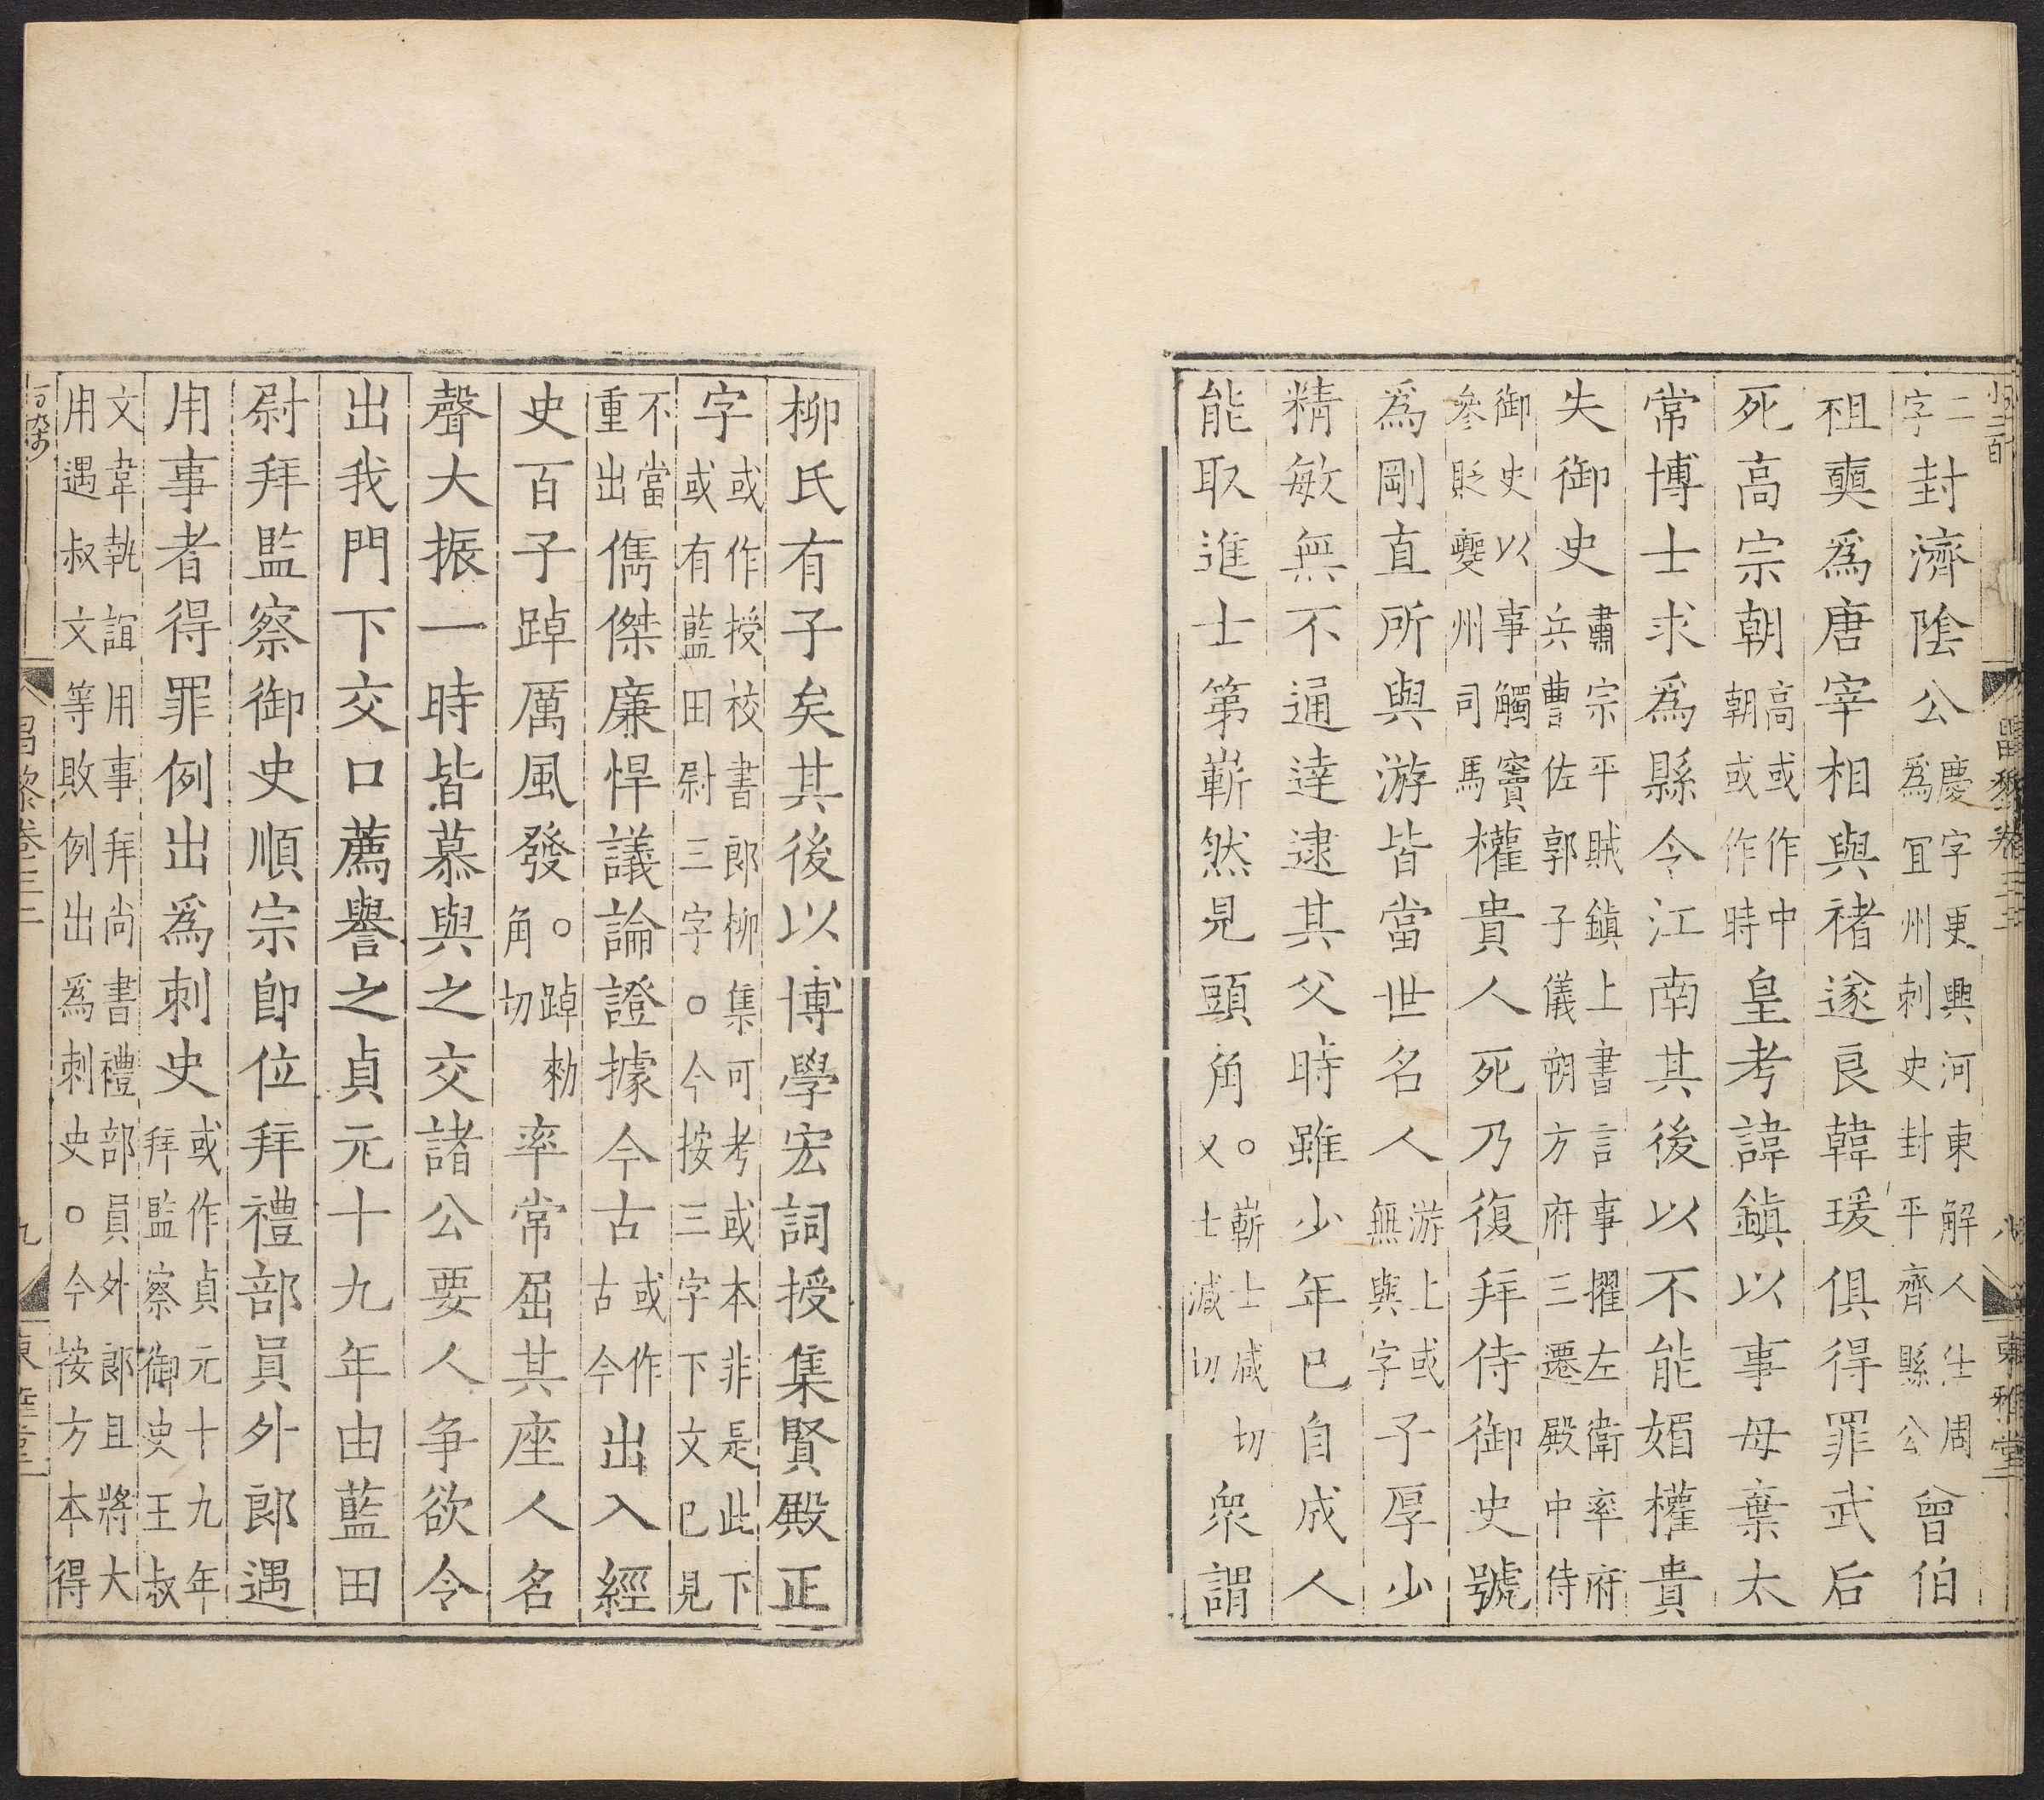 二字封濟陰公慶字更興河東解人仕周爲宜州刺史封平齊縣公曾伯
祖奭爲唐宰相與褚遂良韓瑗俱得罪武后
死高宗朝高或作中朝或作時皇考諱鎮以事母棄太
常博士求爲縣令江南其後以不能媚權貴
失御史肅宗平賊鎮上書言事擢左衛率府兵曹佐郭子儀朔方府三遷殿中侍
御史以事觸竇參貶夔州司馬權貴人死乃復拜侍御史號
爲剛直所與游皆當世名人游上或無與字子厚少
精敏無不通達逮其父時雖少年已自成人
能取進士第嶄然見頭角。嶄士减切又士減切衆謂
柳氏有子矣其後以博學宏詞授集賢殿正
字或作授校書郎柳集可考或本非是此下或有藍田尉三字。今按三字下文已見
不當重出儁傑廉悍議論證據今古或作古今出入經
史百子踔厲風發。踔勑角切率常屈其座人名
聲大振一時皆慕與之交諸公要人争欲令
出我門下交口薦譽之貞元十九年由藍田
尉拜監察御史順宗卽位拜禮部員外郎遇
用事者得罪例出爲刺史或作貞元十九年拜監察御史王叔
文韋執誼用事拜尚書禮部員外郎且將大用遇叔文等敗例出爲刺史。今按方本得
昌黎卷三二
九
東雅堂